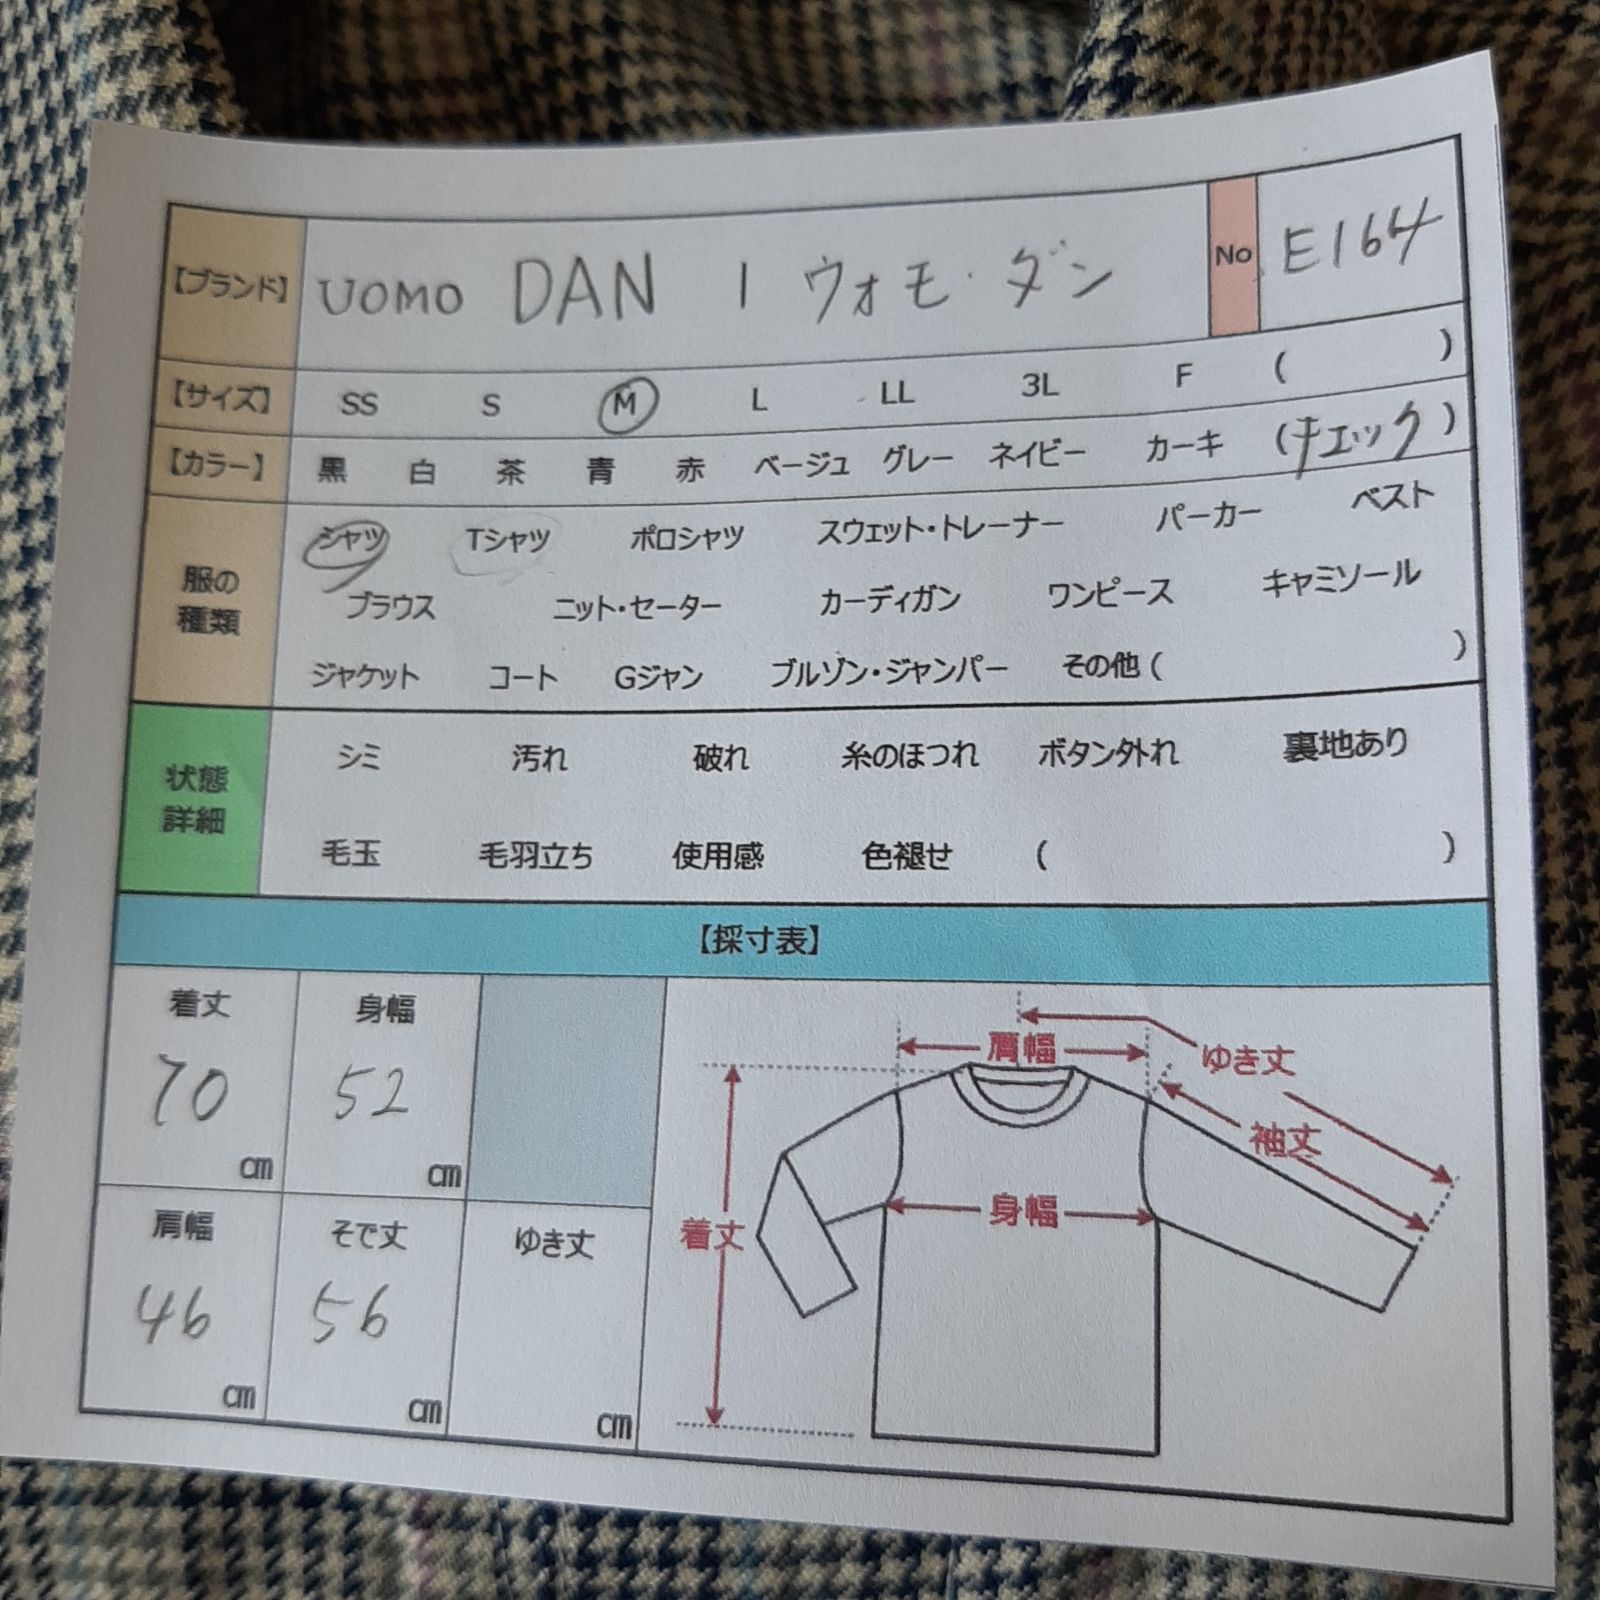 【ブランド】 UOMO DAN | ウォモ・ダン No E164
【サイズ】 SS S M L LL 3L F ( )
【カラー】 黒 白 茶 青 赤 ベージュ グレー ネイビー カーキ (チェック)
服の種類
シャツ Tシャツ ポロシャツ スウェット・トレーナー パーカー ベスト
ブラウス ニット・セーター カーディガン ワンピース キャミソール
ジャケット コート Gジャン ブルゾン・ジャンパー その他 ( )
状態詳細
シミ 汚れ 破れ 糸のほつれ ボタン外れ 裏地あり
毛玉 毛羽立ち 使用感 色褪せ ( )
【採寸表】
着丈 身幅
70 cm 52 cm
肩幅 そで丈 ゆき丈
46 cm 56 cm cm
肩幅 ゆき丈
袖丈
着丈 身幅